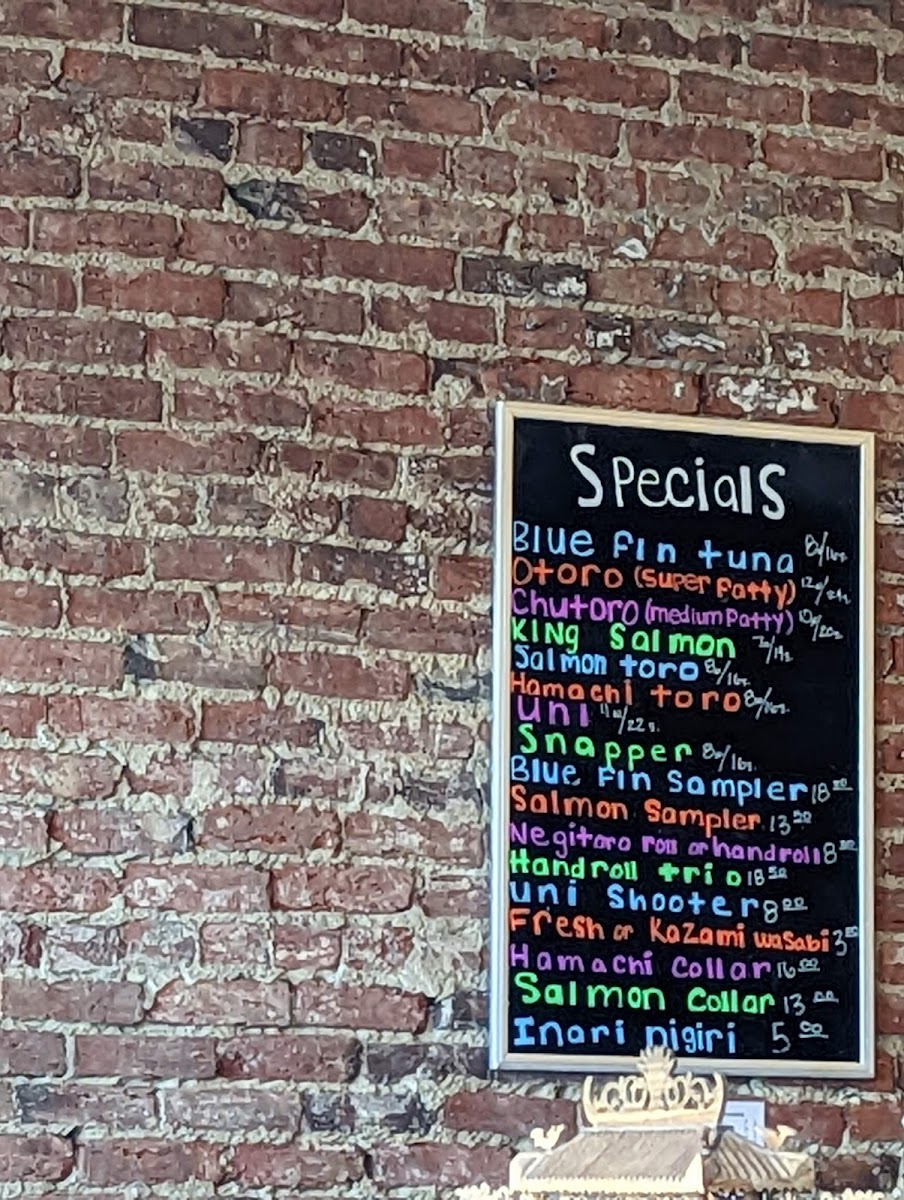 Specials
Blue fin tuna
Otoro (super fatty)
Chutoro (medium Fatty)
King Salmon
Salmon toro
Hamachi toro
Uni
Snapper
Blue Fin Sampler 18
Salmon Sampler 13 50
Negitoro roll or handroll 8
Handroll trio 18 50
uni Shooter 8 00
Fresh or Kazami wasabi 3
Hamachi Collar 16 00
Salmon Collar 13 00
Inari nigiri 5 00